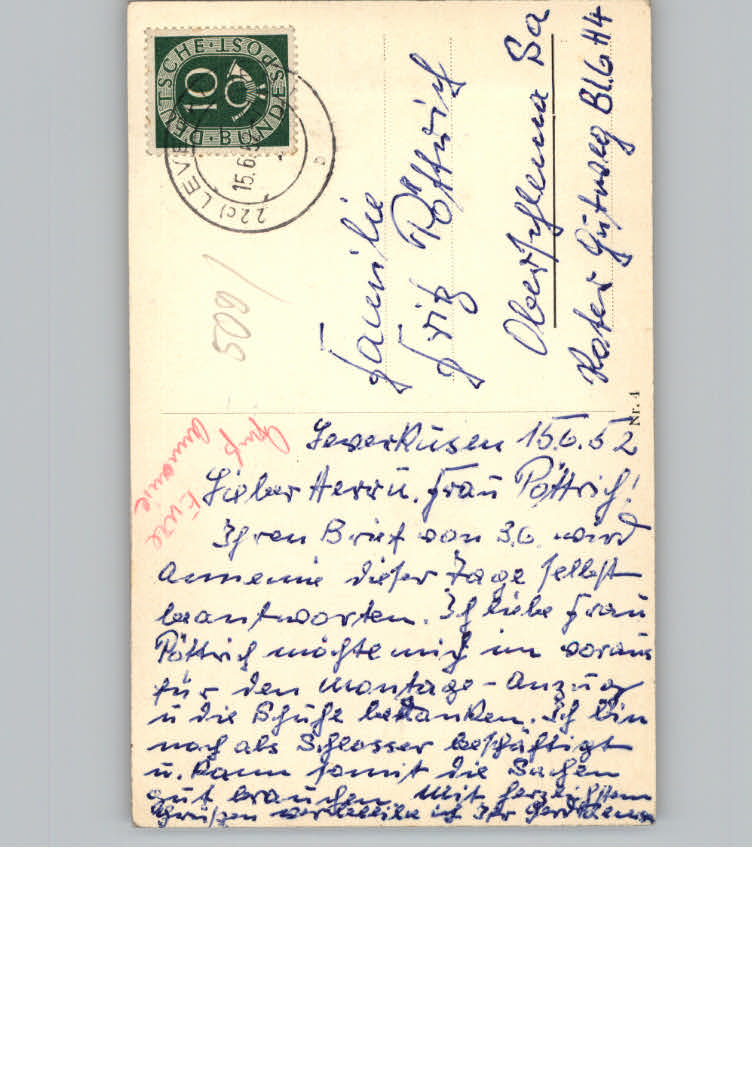 DEUTSCHE·BUNDESPOST
10
(22c) LEVE
15.6.5
b
509/
Familie
Fritz Pöttrich
Oberschlema Sa
Roter Gutweg Bl.6 H4
Nr. 4
Gruß
Annemie
Eure
Leverkusen 15.6.52
Lieber Herr u. Frau Pöttrich!
Ihren Brief von 3.6. wird
Annemie dieser Tage selbst
beantworten. Ich liebe Frau
Pöttrich möchte mich im voraus
für den Montage-Anzug
u die Schuhe bedanken. Ich bin
noch als Schlosser beschäftigt
u. kann somit die Sachen
gut brauchen. Mit herzlichsten
Grüßen verbleibe ich Ihr Gerd